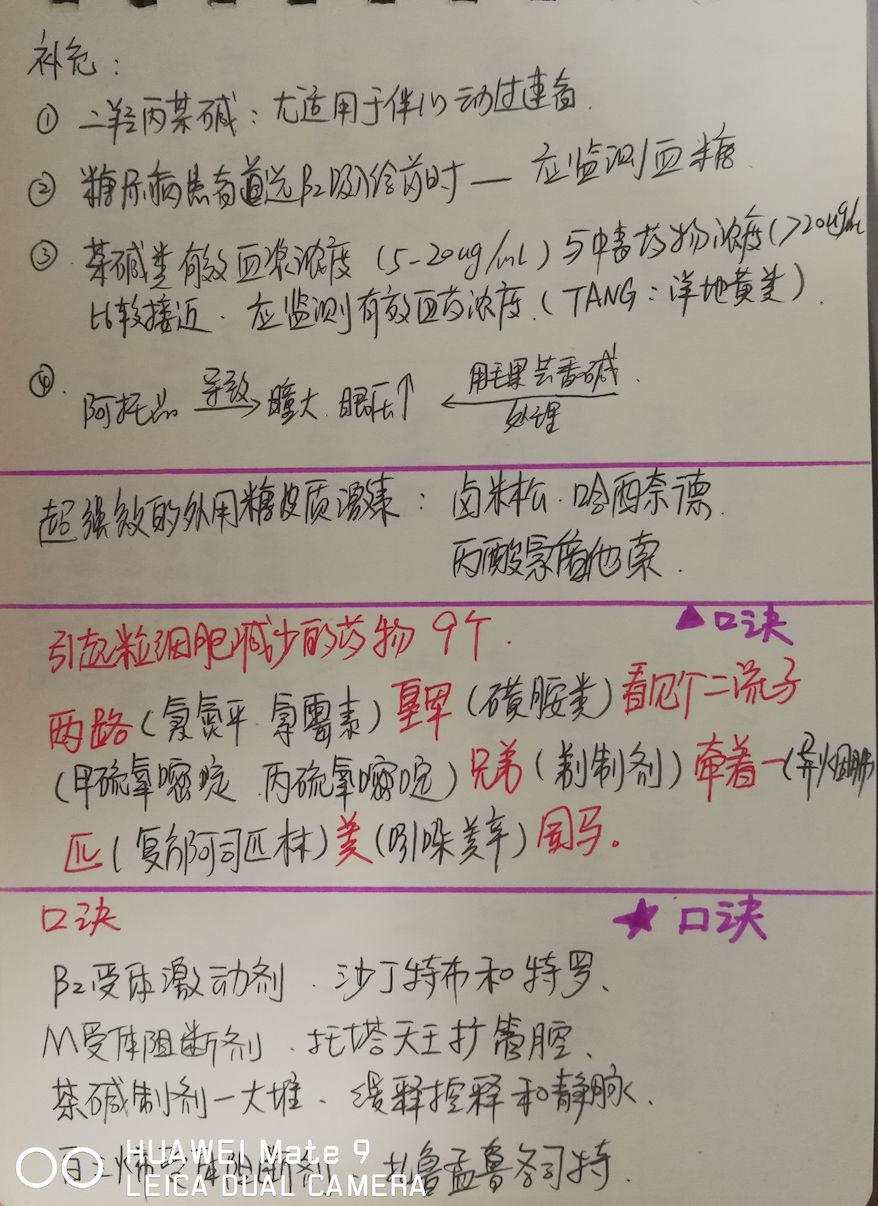 补充：
① 二羟丙茶碱：尤适用于伴心动过速者.
② 糖尿病患者首选β2吸入给药时 — 应监测血糖.
③ 茶碱类有效血浆浓度 (5-20ug/mL) 与中毒药物浓度(>20ug/mL
比较接近. 应监测有效血药浓度. (TANG：洋地黄类).
④ 阿托品 导致 瞳大. 眼压↑ 用毛果芸香碱.
处理
超强效的外用糖皮质激素： 卤米松. 哈西奈德.
丙酸氯倍他索.
引起粒细胞减少的药物 9个. ▲口诀
两路 (氯氮平. 氯霉素) (磺胺类) 看见个二流子
(甲硫氧嘧啶. 丙硫氧嘧啶) 兄弟 ( 制剂) 牵着一(异烟肼
匹 (复方阿司匹林) 美 (吲哚美辛) 国马。
口诀 ★ 口诀
β2受体激动剂. 沙丁特布和特罗、
M受体阻断剂. 托塔天王扩管腔、
茶碱制剂一大堆. 缓释控释和静脉、
白三烯受体阻断剂 扎鲁孟鲁各司特.
HUAWEI Mate 9
LEICA DUAL CAMERA